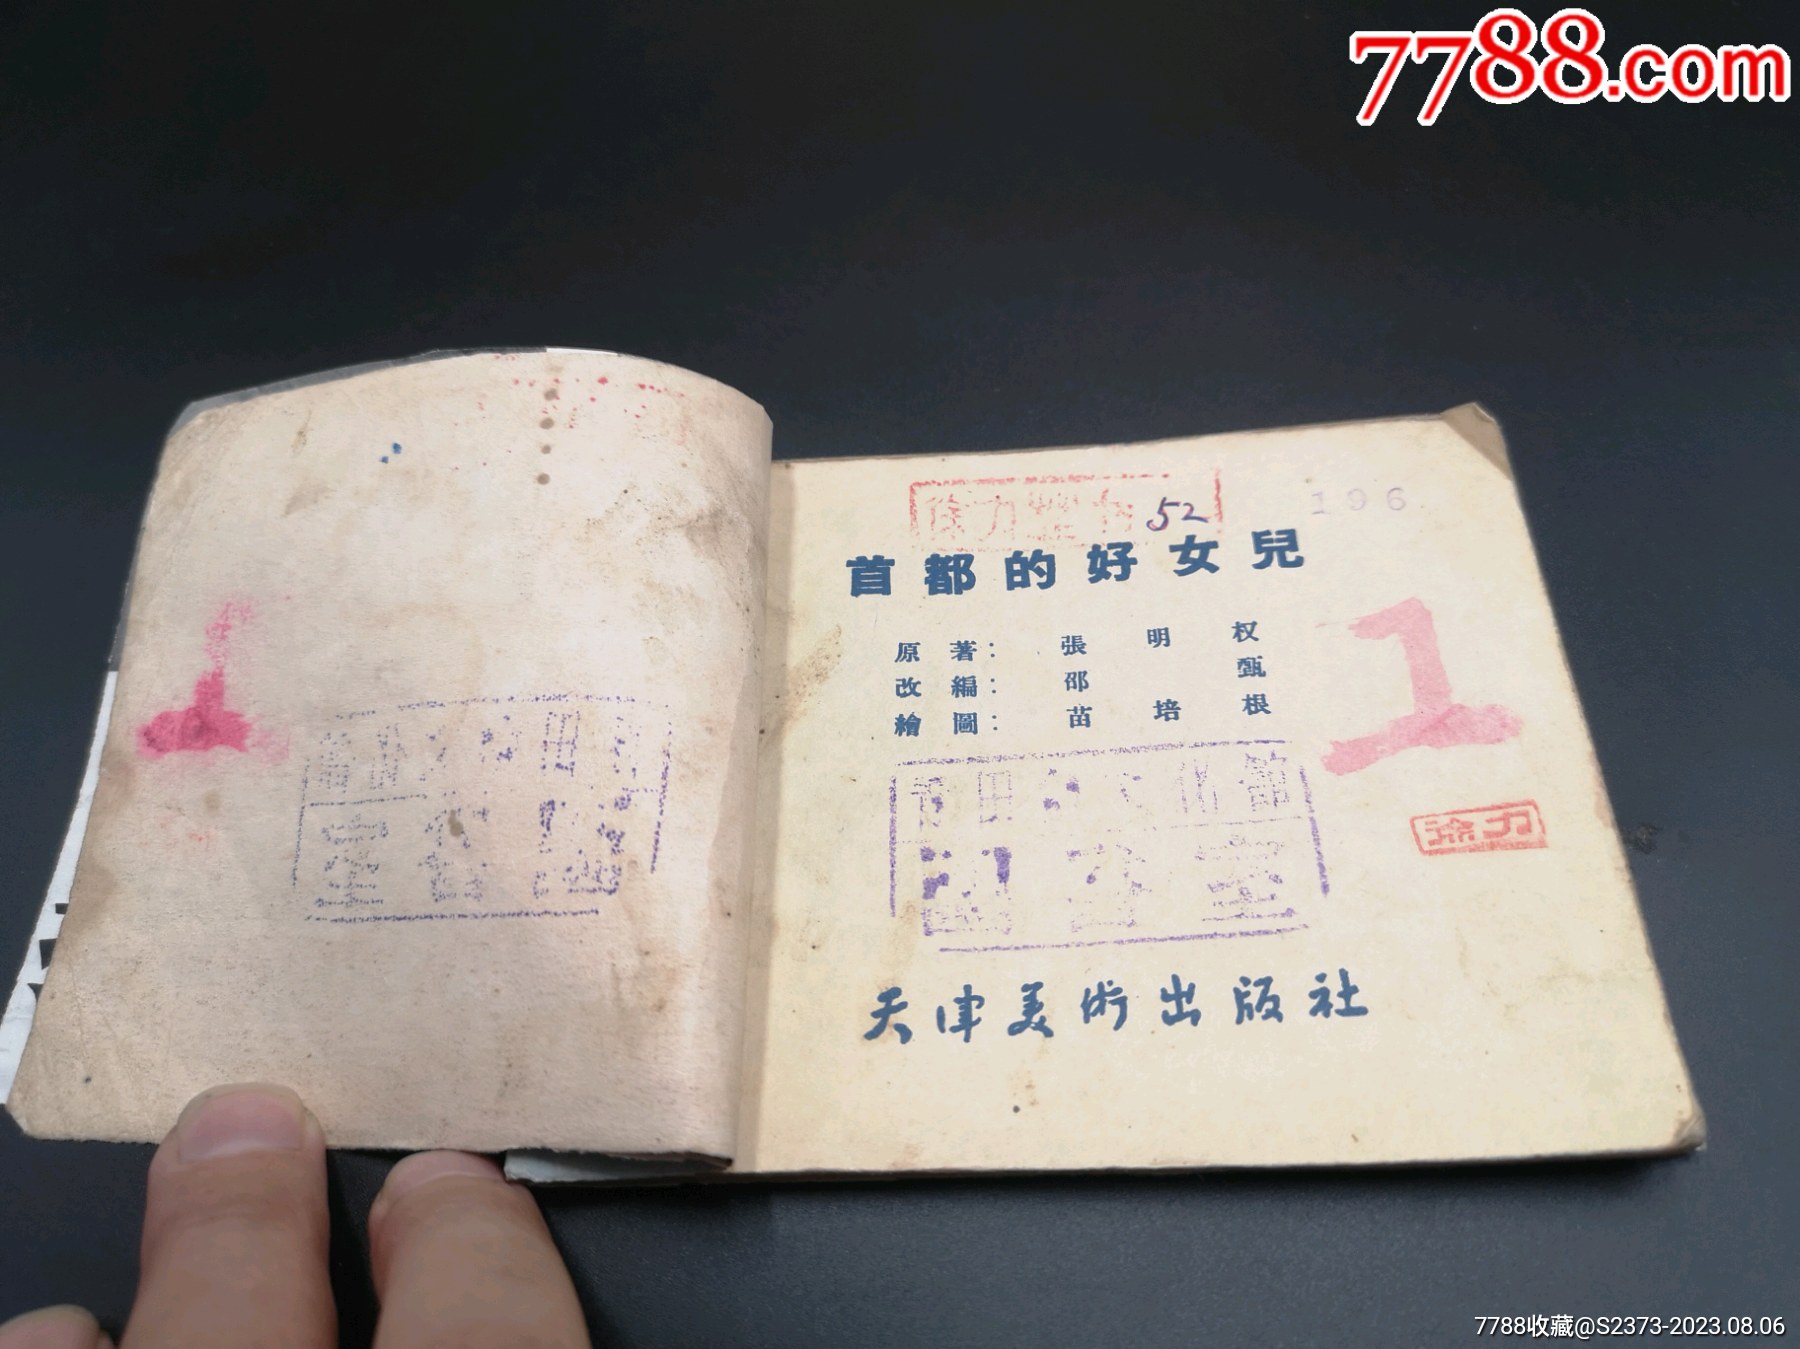 7788.com
52
196
首都的好女兒
原著：張明权
改編：邵甄
繪圖：苗培根
1
天津美術出版社
7788收藏@S2373-2023.08.06